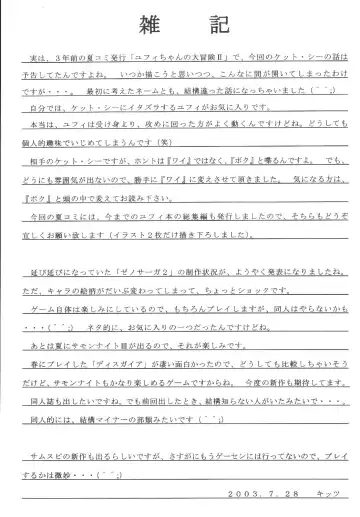 雑記
実は、３年前の夏コミ発行「ユフィちゃんの大冒険Ⅱ」で、今回のケット・シーの話は
予告してたんですよね。　いつか描こうと思いつつ、こんなに間が開いてしまったわけ
ですが・・・。　最初に考えたネームとも、結構違った話になっちゃいました（＾＾；）
自分では、ケット・シーにイタズラするユフィがお気に入りです。
本当は、ユフィは受け身より、攻めに回った方がよく動くんですけどね。どうしても
個人的趣味でいじめてしまうんです（笑）
相手のケット・シーですが、ホントは『ワイ』ではなく、『ボク』と喋るんですよ。　でも、
どうにも雰囲気が出ないので、勝手に『ワイ』に変えさせて頂きました。　気になる方は、
『ボク』と頭の中で変えてお読み下さい。
今回の夏コミには、今までのユフィ本の総集編も発行しましたので、そちらもどうぞ
宜しくお願い致します（イラスト２枚だけ描き下ろしました）。
延び延びになっていた「ゼノサーガ２」の制作状況が、ようやく発表になりましたね。
ただ、キャラの絵柄がだいぶ変わってしまって、ちょっとショックです。
ゲーム自体は楽しみにしているので、もちろんプレイしますが、同人はやらないかも
・・・（＾＾；）　ネタ的に、お気に入りの一つだったんですけどね。
あとは夏にサモンナイト目が出るので、それが楽しみです。
春にプレイした「ディスガイア」が凄い面白かったので、どうしても比較しちゃいそう
だけど、サモンナイトもかなり楽しめるゲームですからね。　今度の新作も期待してます。
同人誌も出したいですね。でも前回出したとき、結構知らない人がいたみたいで・・・。
同人的には、結構マイナーの部類みたいです（＾＾；）
サムスピの新作も出るらしいですが、さすがにもうゲーセンには行ってないので、プレイ
するかは微妙・・・（＾＾；）
２００３．７．２８　　キッツ